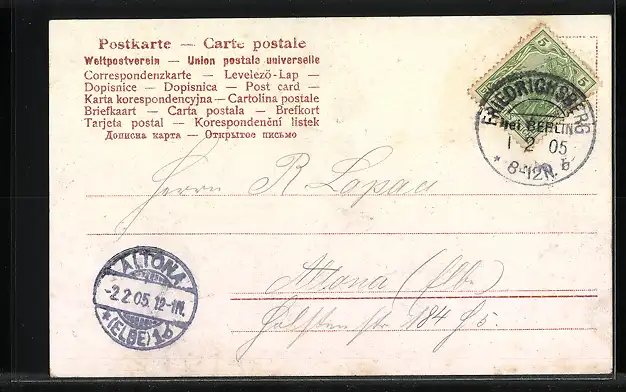 Postkarte — Carte postale
Weltpostverein — Union postale universelle
Correspondenzkarte — Levelező-Lap —
Dopisnice — Dopisnica — Post card —
Karta korespondencyjna — Cartolina postale
Briefkaart — Carta postala — Brefkort
Tarjeta postal — Korespondenční listek
Дописна карта — Открытое письмо
5 5
FRIEDRICHSBERG
bei BERLIN
1 2 05
* 8-12N. b
Herrn R Lapau
ALTONA
-2.2.05.12-1N.
* (ELBE) 1 b
Altona (Elbe)
Holsten str 184 H 5.